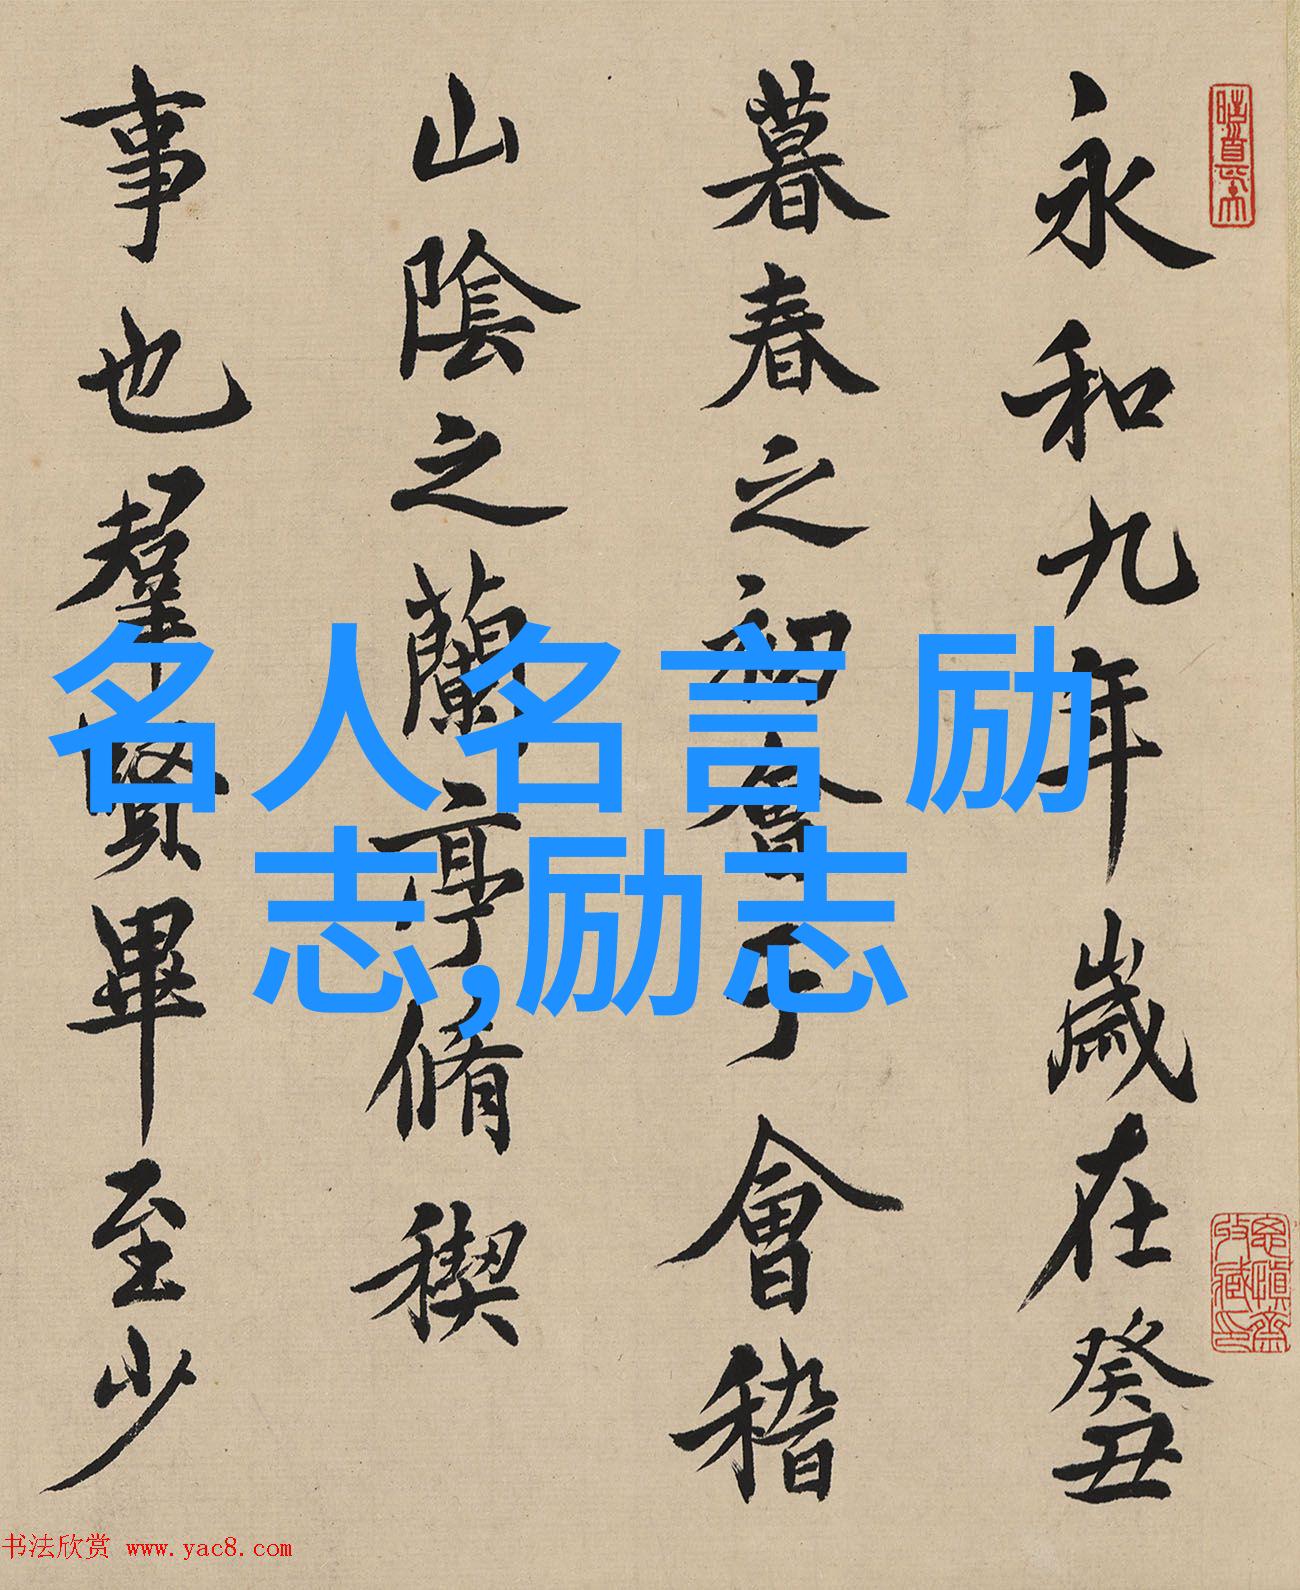 永和九年歲在癸丑
暮春之初會于會稽
山陰之蘭亭脩稧
事也羣賢畢至少
名人名言 励
志,励志
书法欣赏 www.yac8.com